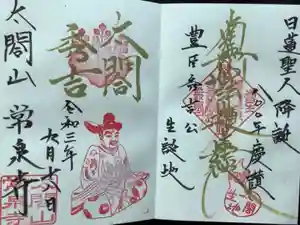 日蓮聖人降誕
八〇〇年慶讃
南無妙法蓮華経
豊臣秀吉公
生誕地
太閤
秀吉
令和三年
六月十六日
太閤山
常泉寺